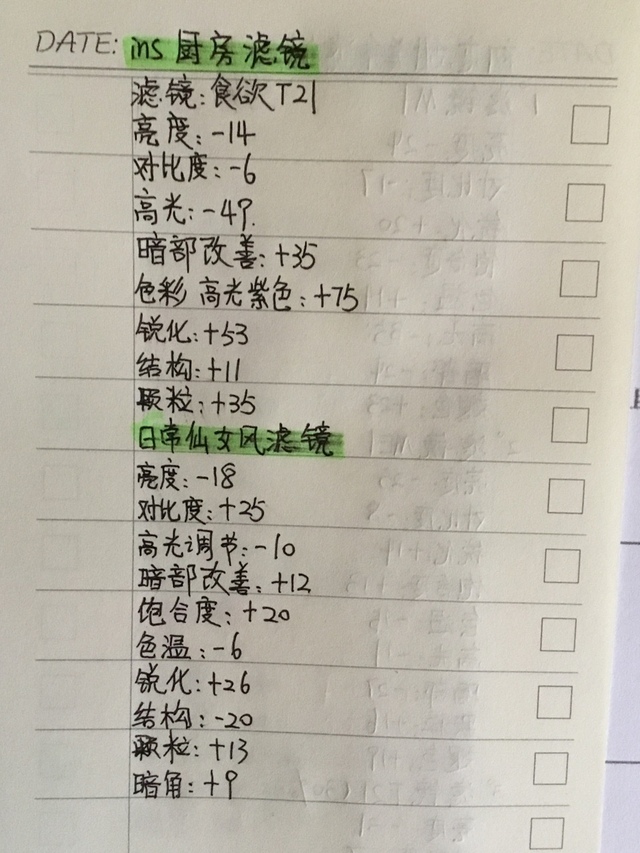 DATE: ins 厨房滤镜
滤镜:食欲T21
亮度:-14
对比度:-6
高光:-49.
暗部改善:+35
色彩 高光紫色:+75
锐化:+53
结构:+11
颗粒:+35
日常仙女风滤镜
亮度:-18
对比度:+25
高光调节:-10
暗部改善:+12
饱合度:+20
色温:-6
锐化:+26
结构:-20
颗粒:+13
暗角:+9